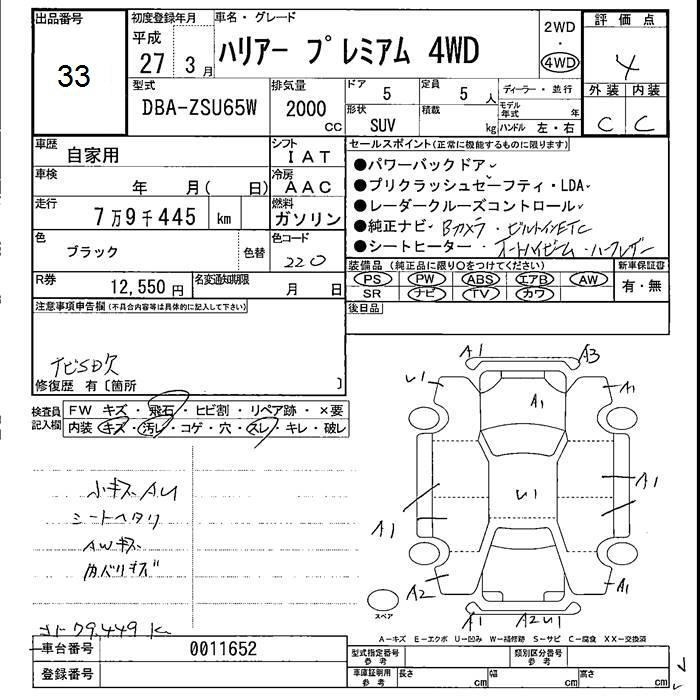 出品番号
33
初度登録年月
平成
27 3 月
車名・グレード
ハリアー プレミアム 4WD
2WD
・
4WD
評価点
4
外装 内装
C C
型式
DBA-ZSU65W
排気量
2000
CC
ドア
5
定員
5 人
形状
SUV
積載
kg
ディーラー・並行
モデル
年式 年
ハンドル 左・右
車歴
自家用
シフト
IAT
車検
年 月( 日)
冷房
AAC
走行
7万9千445 km
燃料
ガソリン
色
ブラック
色替
色コード
220
R券
12,550円
名変通知期限
月 日
セールスポイント(正常に機能するものに限ります)
●パワーバックドア
●プリクラッシュセーフティ・LDA
●レーダークルーズコントロール
●純正ナビ・Bカメラ・ビルトインETC
●シートヒーター・オートハイビーム・ハーフレザー
装備品(純正品に限り○をつけてください)
新車保証書
PS PW ABS エアB AW
SR ナビ TV カワ
有・無
後日品
注意事項申告欄(不具合内容等は具体的に記入して下さい)
ナビSD欠
修復歴 有〔箇所 〕
検査員
記入欄
FW キズ・飛石・ヒビ割・リペア跡・×要
内装 キズ・汚レ・コゲ・穴・スレ・キレ・破レ
小キズAU
シートヘタリ
AWキズ
内バリキズ
79,449 K
A1 A3
U1 A1
A1
U1
A1
A1
A2 A1
A1 A2U1
スペア
A-キズ E-エクボ U-凹み W-補修跡 S-サビ C-腐食 XX-交換済
車台番号
0011652
登録番号
型式指定番号
参考
類別区分番号
参考
車庫証明用
参考
長さ cm 幅 cm 高さ cm